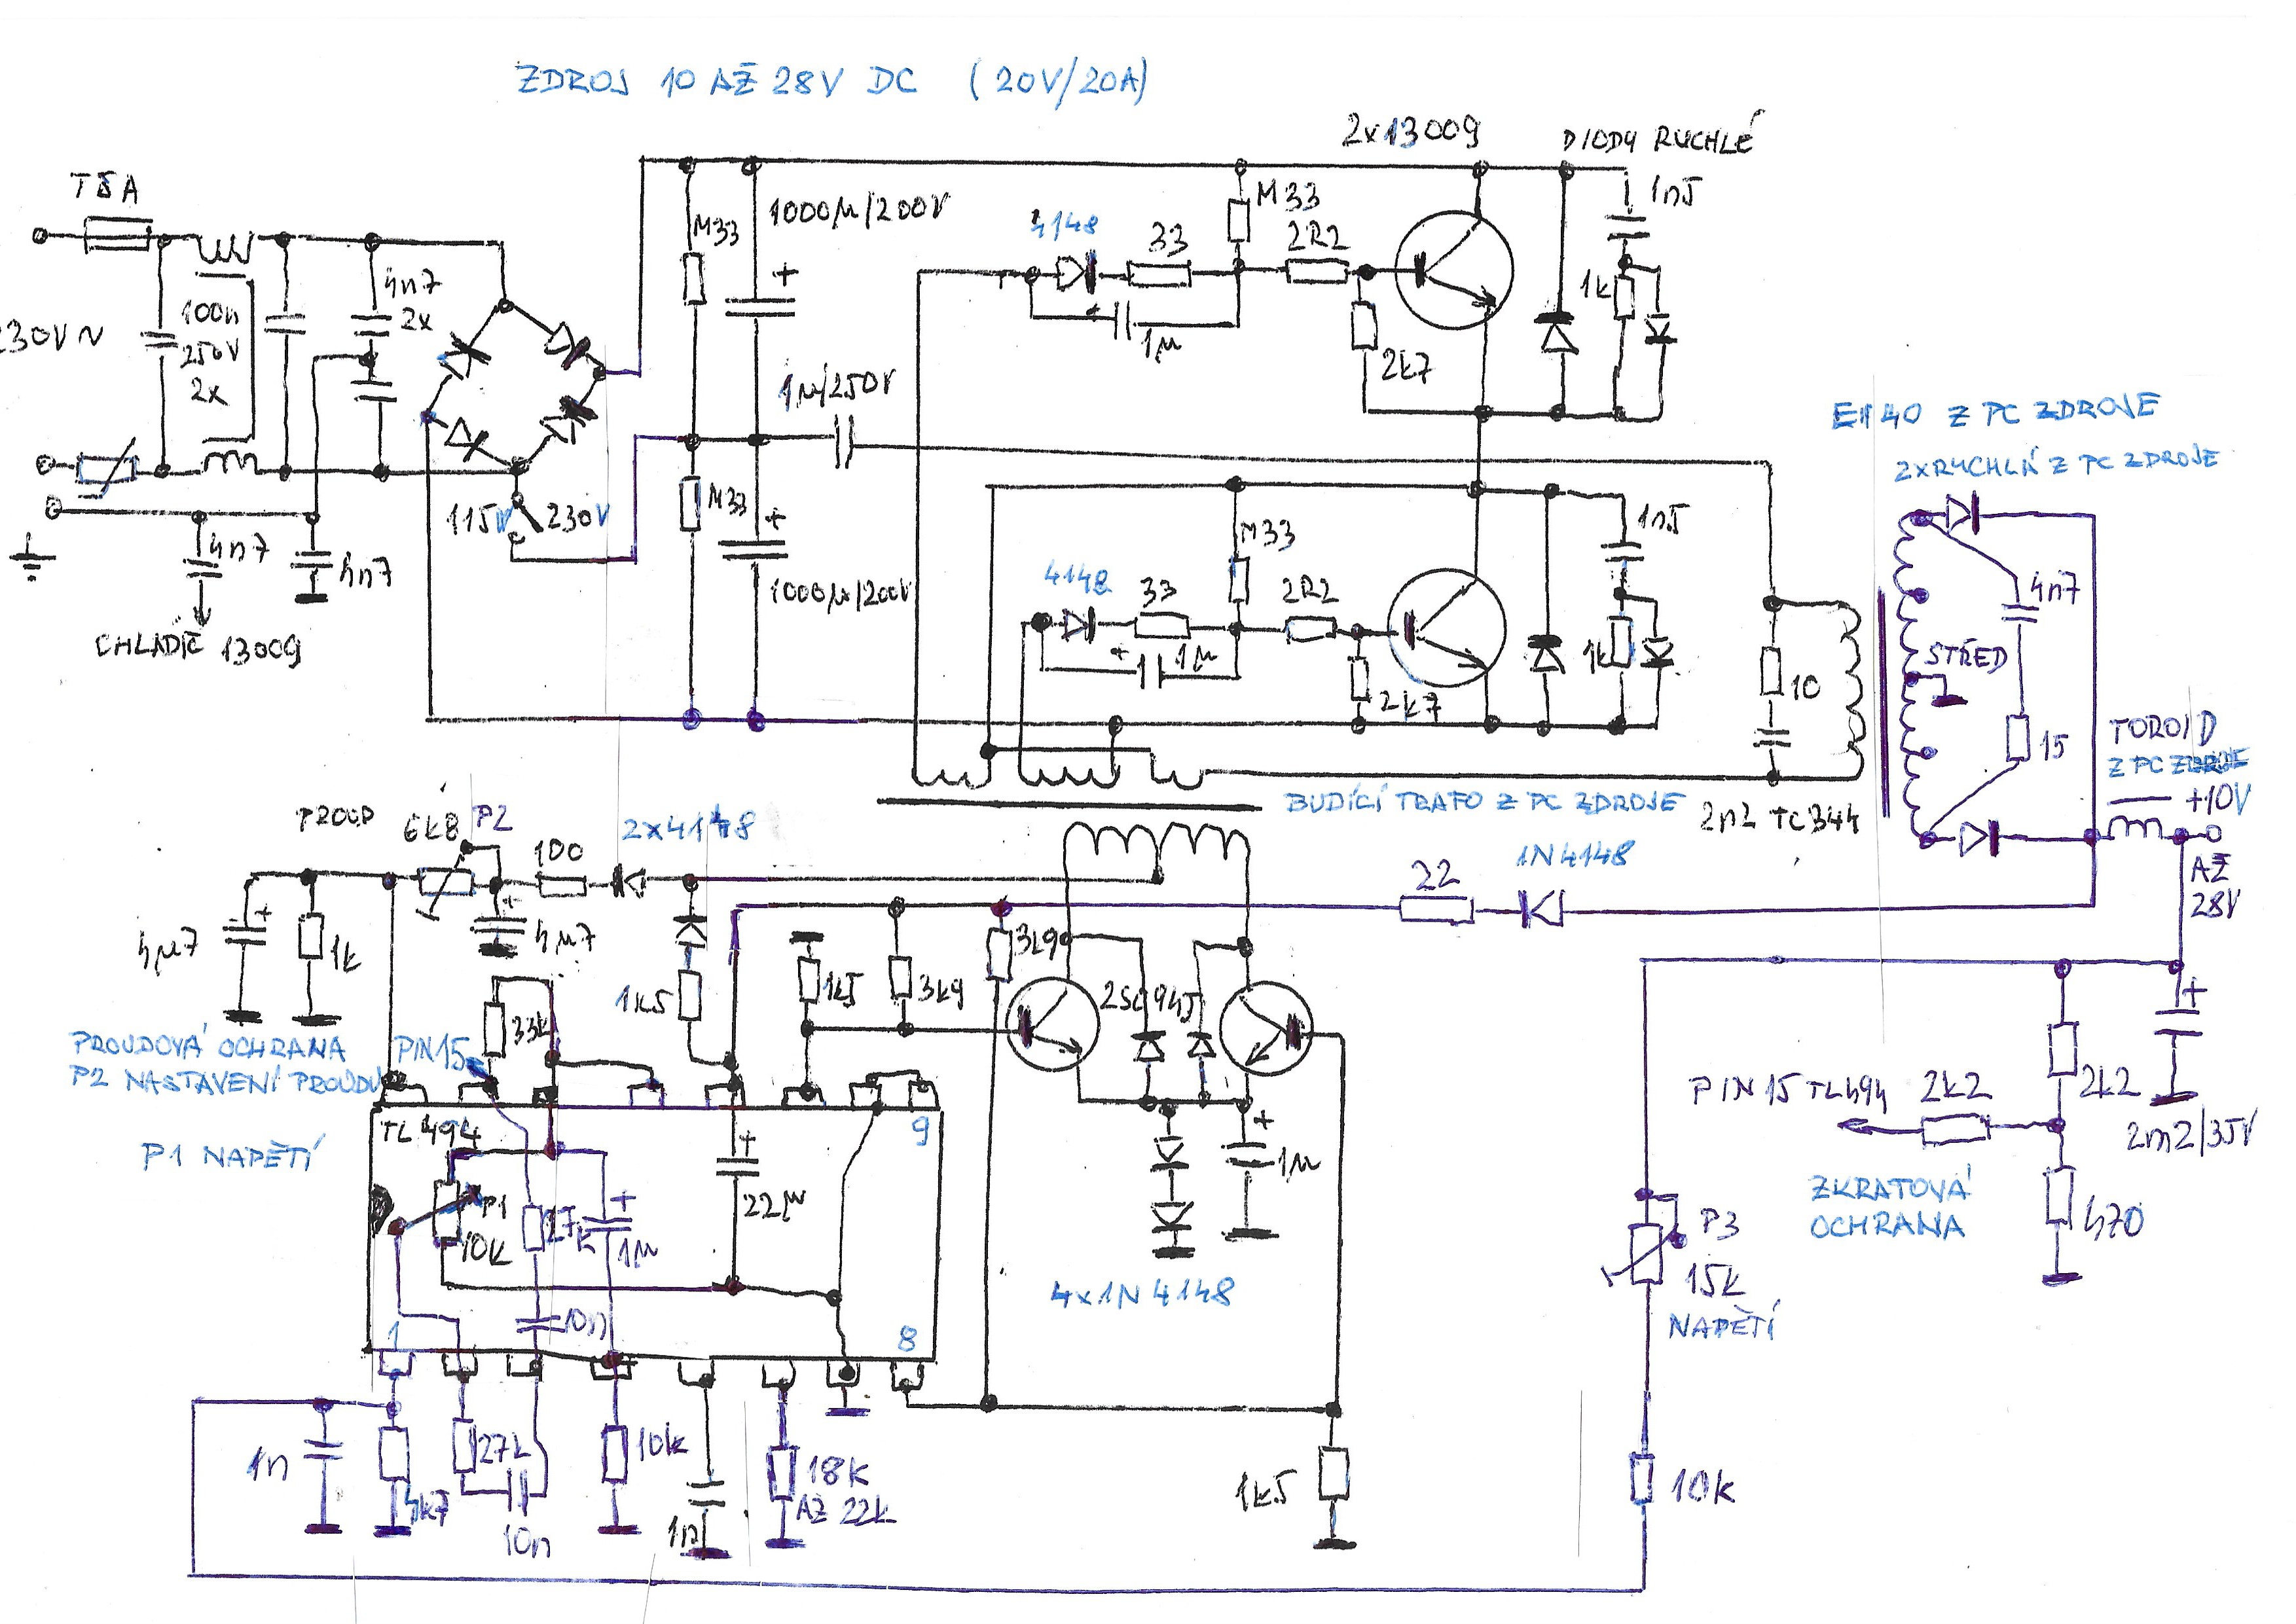 ZDROJ 10 AŽ 28V DC (20V/20A)
2x13009
DIODY RUCHLÉ
T5A
1n5
M33
1000µ/200V
M33
4148
33
2R2
1k
4n7
2x
100n
250V
2x
230V~
1µ
2k7
1µ/250V
EI40 Z PC ZDROJE
2xRYCHLÁ Z PC ZDROJE
115V
230V
M33
M33
1n5
4n7
4n7
4148
33
2R2
1000µ/200V
1µ
1k
4n7
STŘED
CHLADIČ 13009
2k7
10
15
TOROID
Z PC ZDROJE
+10V
AŽ
28V
BUDÍCÍ TRAFO Z PC ZDROJE
2n2 TC344
PROUD
6k8
P2
100
2x4148
22
1N4148
4µ7
1k
4µ7
3k9
1k5
1k5
3k9
2SC945
33k
PROUDOVÁ OCHRANA
P2 NASTAVENÍ PROUDU
PIN15
2k2
PIN 15 TL494
2k2
2m2/35V
TL494
9
P1 NAPĚTÍ
1µ
P1
10k
27k
1µ
22µ
ZKRATOVÁ
OCHRANA
470
P3
15k
NAPĚTÍ
4x1N4148
10n
1
8
1n
4k7
27k
10n
10k
1n
18k
AŽ 22k
1k5
10k